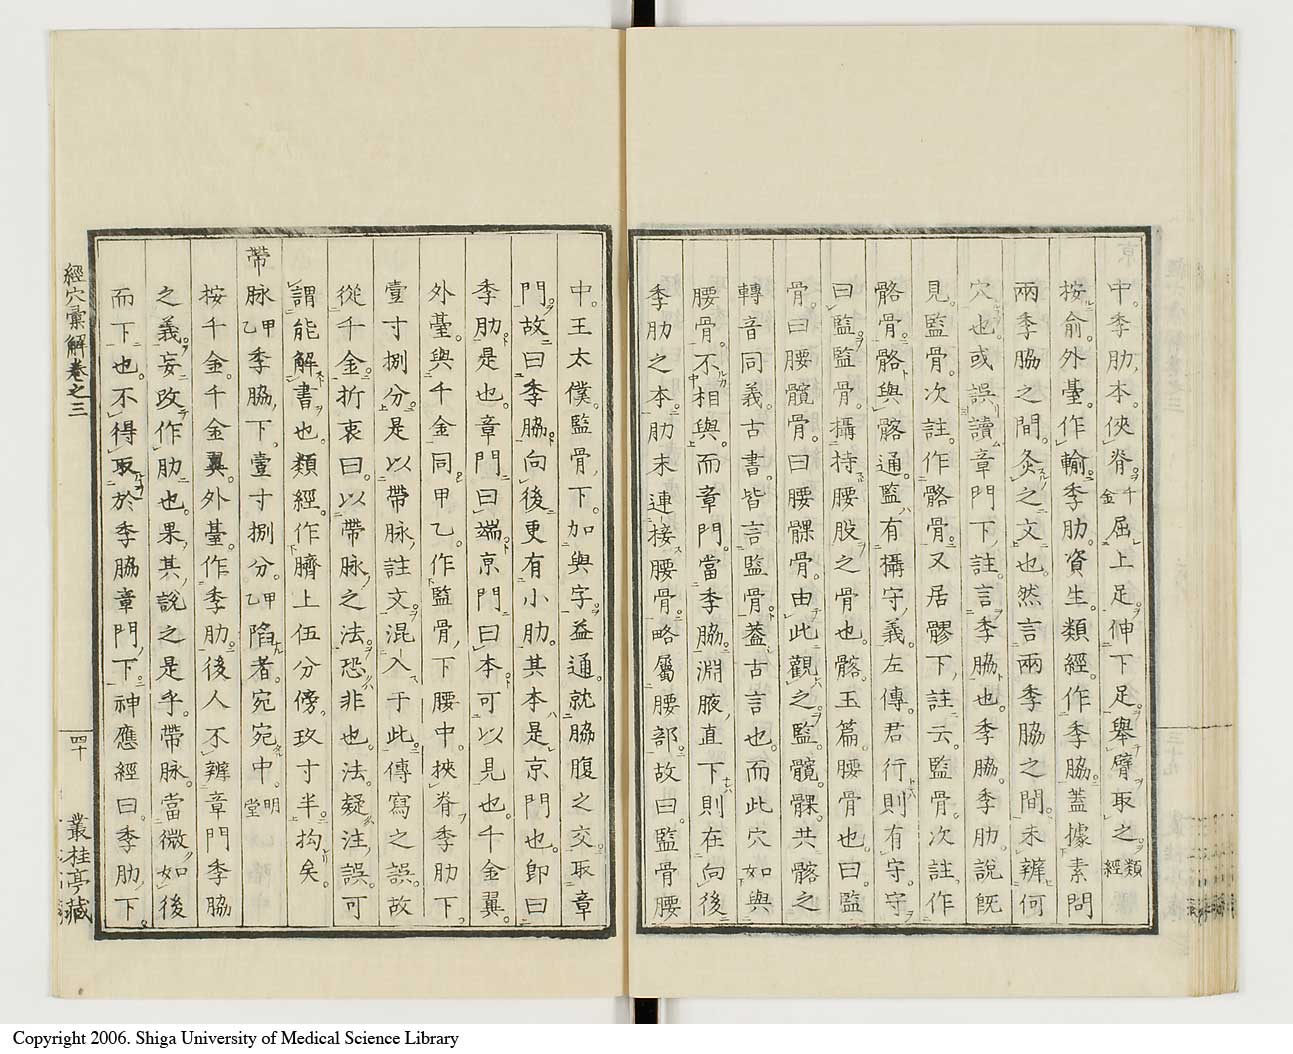 中。季肋本。俠脊。千金屈上足伸下足。舉臂取之。類經
按。俞。外臺。作輸。季肋。資生。類經。作季脇。蓋據素問
兩季脇之間。灸之之文也。然言兩季脇之間。未辨何
穴也。或誤讀章門下註。言季脇也。季脇。季肋。說旣
見。監骨。次註。作髂骨。又居髎下註云。監骨。次註。作
髂骨。髂與髂通。監有攝守義。左傳。君行則有守。守
曰監。監骨。攝持腰股之骨也。髂。玉篇。腰骨也。曰監
骨。曰腰髖骨。曰腰髁骨。由此觀之。監。髖。髁。共髂之
轉音同義。古書。皆言監骨。蓋古言也。而此穴如與
腰骨。不相與。而章門。當季脇。淵腋直下則在向後
季肋之本。肋末連接腰骨。略屬腰部。故曰監骨腰
中。王太僕。監骨下。加與字。益通。就脇腹之交。取章
門。故曰季脇。向後更有小肋。其本是京門也。卽曰
季肋是也。章門曰端。京門曰本。可以見也。千金翼。
外臺。與千金同。甲乙。作監骨下腰中。挾脊季肋下。
壹寸捌分。是以帶脉註文。混入于此。傳寫之誤。故
從千金。折衷曰。以帶脉之法。恐非也。法。疑注誤。可
謂能解書也。類經。作臍上伍分傍。玖寸半。拘矣。
帶脉甲乙季脇下。壹寸捌分。甲乙陷者。宛宛中。明堂
按千金。千金翼。外臺。作季肋。後人不辨章門季脇
之義。妄改作肋也。果其說之是乎。帶脉。當微如後
而下也。不得取於季脇章門下。神應經曰。季肋下。
經穴彙解卷之三
四十
叢桂亭藏
Copyright 2006. Shiga University of Medical Science Library